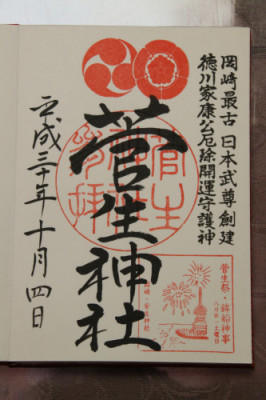 岡崎最古 日本武尊創建
徳川家康公厄除開運守護神
菅生神社
平成三十年十月四日
菅生祭・鉾船神事
菅生神社